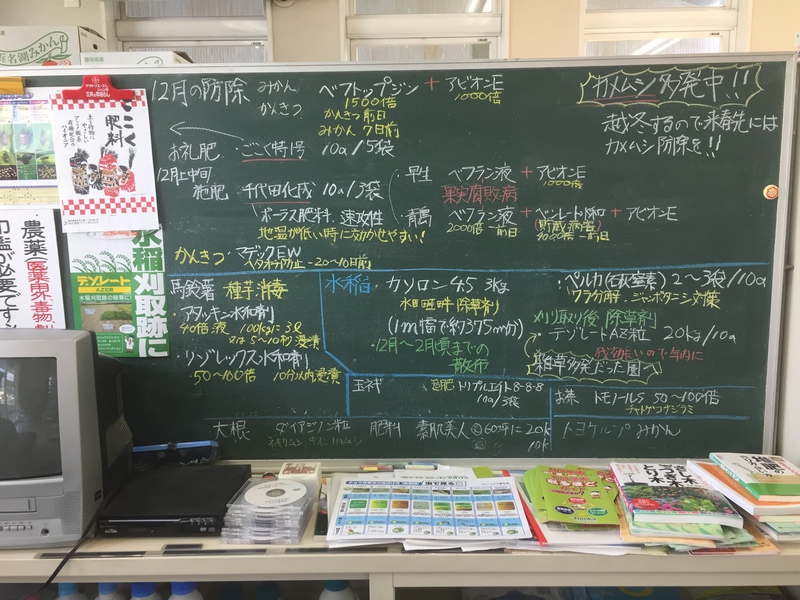 12月の防除 みかん かんきつ
ベフトップジン + アビオンE
1500倍 1000倍
かんきつ 前日
みかん 7日前
カメムシ多発中!!
越冬するので来春先には
カメムシ防除を!!
お礼肥 ・ごこく特号 10a/5袋
12月上中旬
施肥 千代田化成 10a/3袋
ポーラス肥料、速攻性
地温が低い時に効かせやすい!
・早生 ベフラン液 + アビオンE
1000倍
果実腐敗病
・青島 ベフラン液 + ベンレート水和 + アビオンE
2000倍 前日 (貯蔵病害) 前日
かんきつ ・マデックEW
ヘタ落ち防止 -20〜10日前
馬鈴薯 種芋消毒
・アタッキン水和剤
40倍液 100kg:3L
又は5〜10秒浸漬
・リゾレックス水和剤
50〜100倍 10分以内浸漬
水稲 ・カソロン4.5 3kg
水田畦畔 除草剤
(1m幅で約375m分)
・12月〜2月頃までの
散布
・ペルカ(石灰窒素) 2〜3袋/10a
ワラ分解・ジャンボタニシ対策
刈り取り後 除草剤
・テゾレートAZ粒 20kg/10a
残効短いので年内に
雑草多発だった圃へ
玉ネギ 追肥 トリプルエイト8-8-8
10a/3袋
お茶 トモノールS 50〜100倍
チャトゲコナジラミ
大根 ダイアジノン粒 肥料 素肌美人 60坪に20k
10k
トヨケルプみかん
浜名湖みかん
ごこく肥料
水稲刈取跡に
テゾレート
AZ粒剤
水稲刈取跡の除草に!
農薬(医薬用外毒物、劇
印鑑が必要です